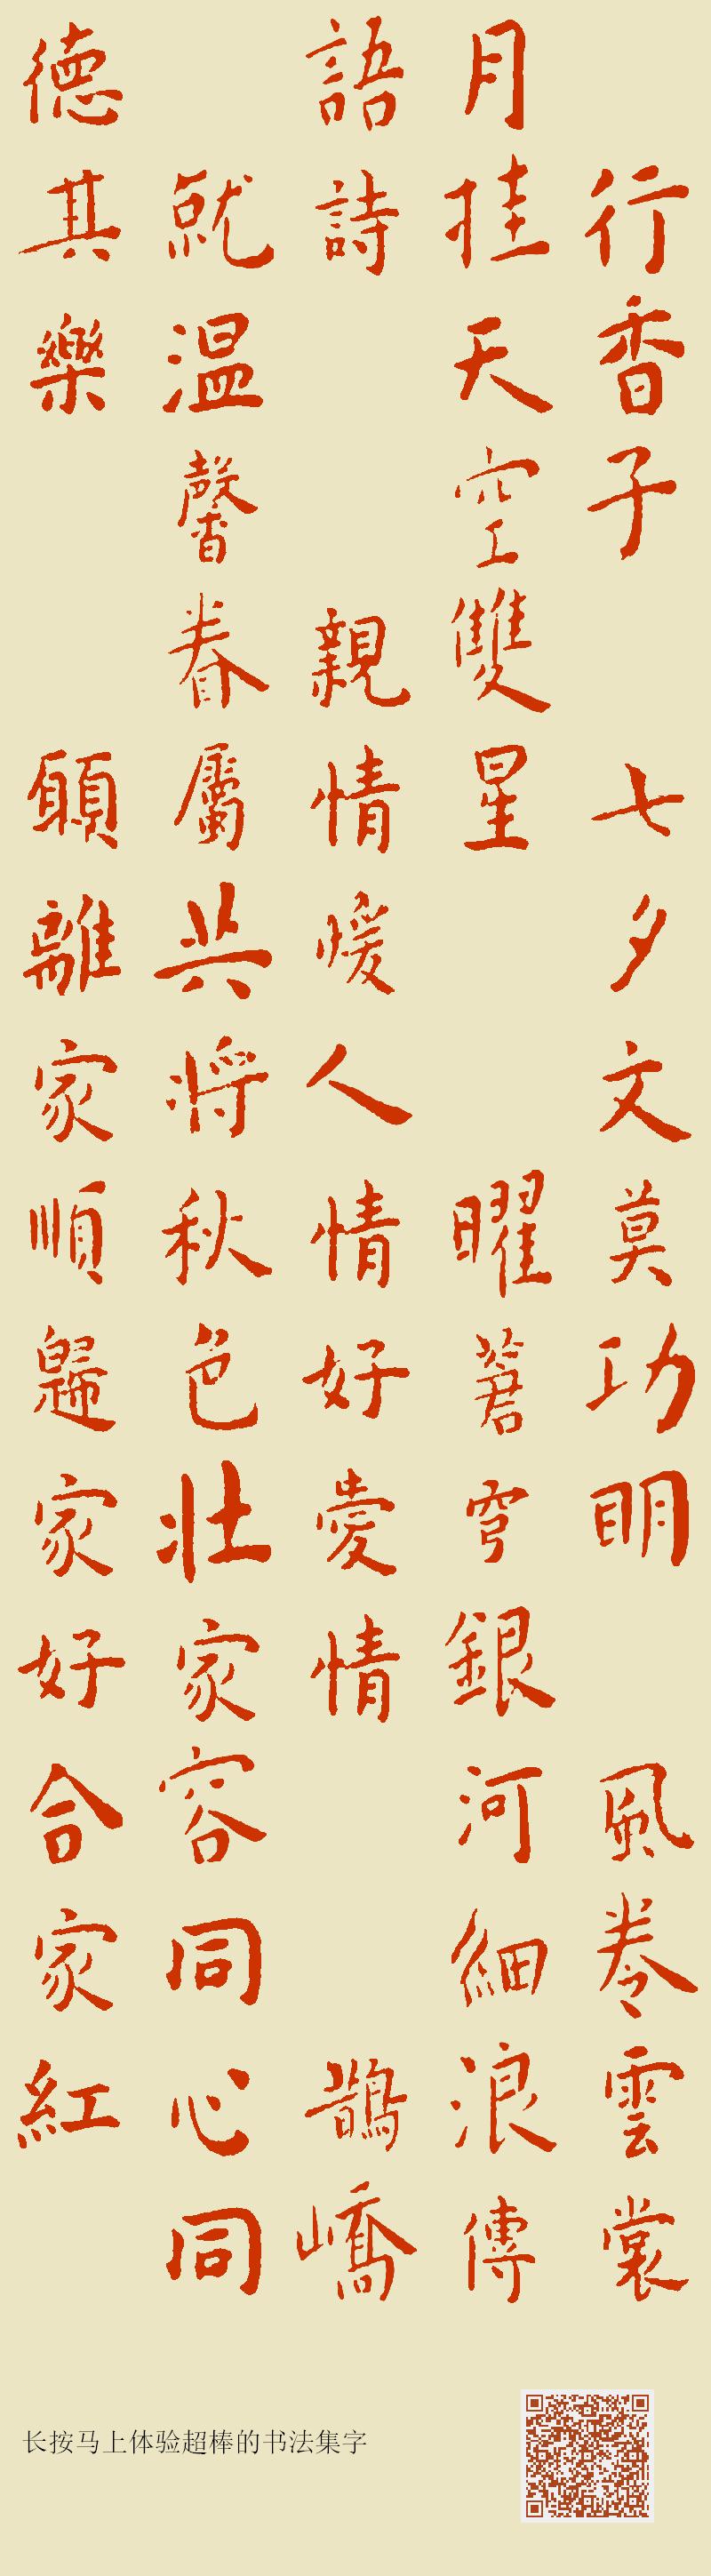 行香子 七夕文莫功明 風卷雲裳
月挂天空雙星 曜蒼穹銀河細浪傳
語詩 親情暖人情好愛情 鵲嶠
就温馨眷屬共將秋色壯家容同心同
德其樂 願離家順歸家好合家紅
长按马上体验超棒的书法集字